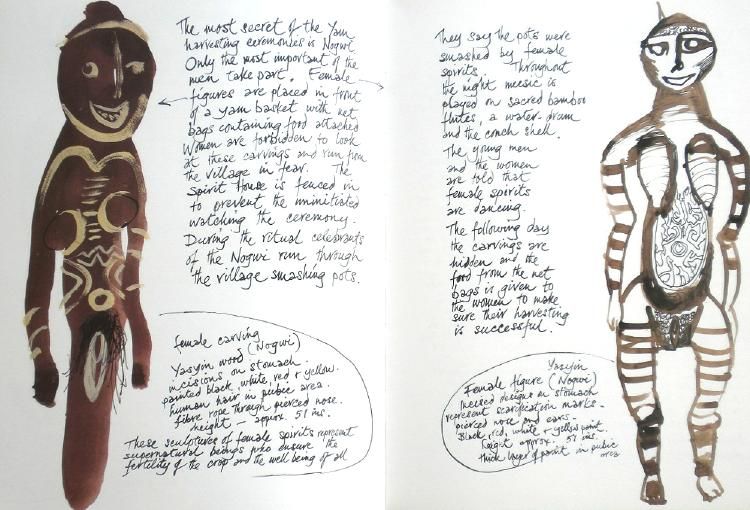 The most secret of the Yam
harvesting ceremonies is Nogwi
Only the most important of the
men take part. Female
figures are placed in front
of a yam basket with net
bags containing food attached
Women are forbidden to look
at these carvings and run from
the village in fear. The
Spirit House is fenced in
to prevent the uninitiated
watching the ceremony.
During the ritual celebrants
of the Nogwi run through
the village smashing pots.
female carving
(Nogwi)
Yasyin wood
incisions on stomach.
painted black, white, red & yellow.
human hair in pubic area.
fibre rope through pierced nose.
height – approx. 51 ins.
These sculptures of female spirits represent
supernatural beings who ensure the
fertility of the crop and the well being of all
They say the pots were
smashed by female
spirits. Throughout
the night music is
played on sacred bamboo
flutes, a water-drum
and the conch shell.
The young men
and the women
are told that
female spirits
are dancing.
The following day
the carvings are
hidden and the
food from the net
bags is given to
the women to make
sure their harvesting
is successful.
Yasyin
Female figure (Nogwi)
Incised designs on stomach
represent scarification marks.
pierced nose and ears.
Black, red, white & yellow paint.
height approx. 57 ins.
thick layer of paint in pubic
area